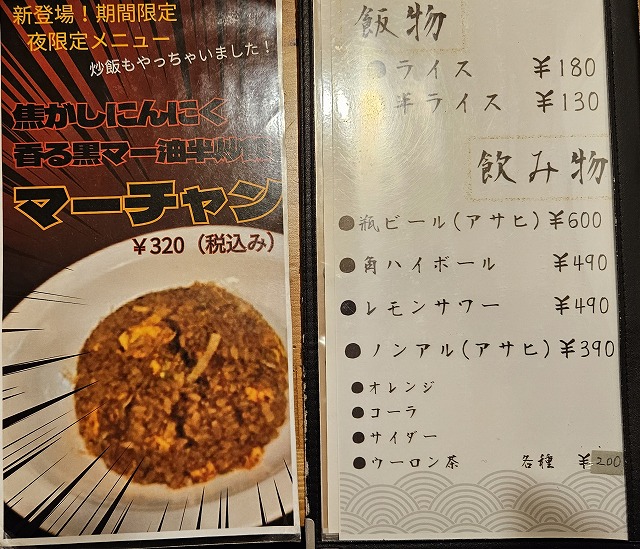 新登場！期間限定
夜限定メニュー
炒飯もやっちゃいました！
焦がしにんにく
香る黒マー油半炒飯
マーチャン
￥320（税込み）
飯物
●ライス ￥180
半ライス ￥130
飲み物
●瓶ビール(アサヒ)￥600
●角ハイボール ￥490
●レモンサワー ￥490
●ノンアル(アサヒ)￥390
●オレンジ
●コーラ
●サイダー
●ウーロン茶 各種 ￥200